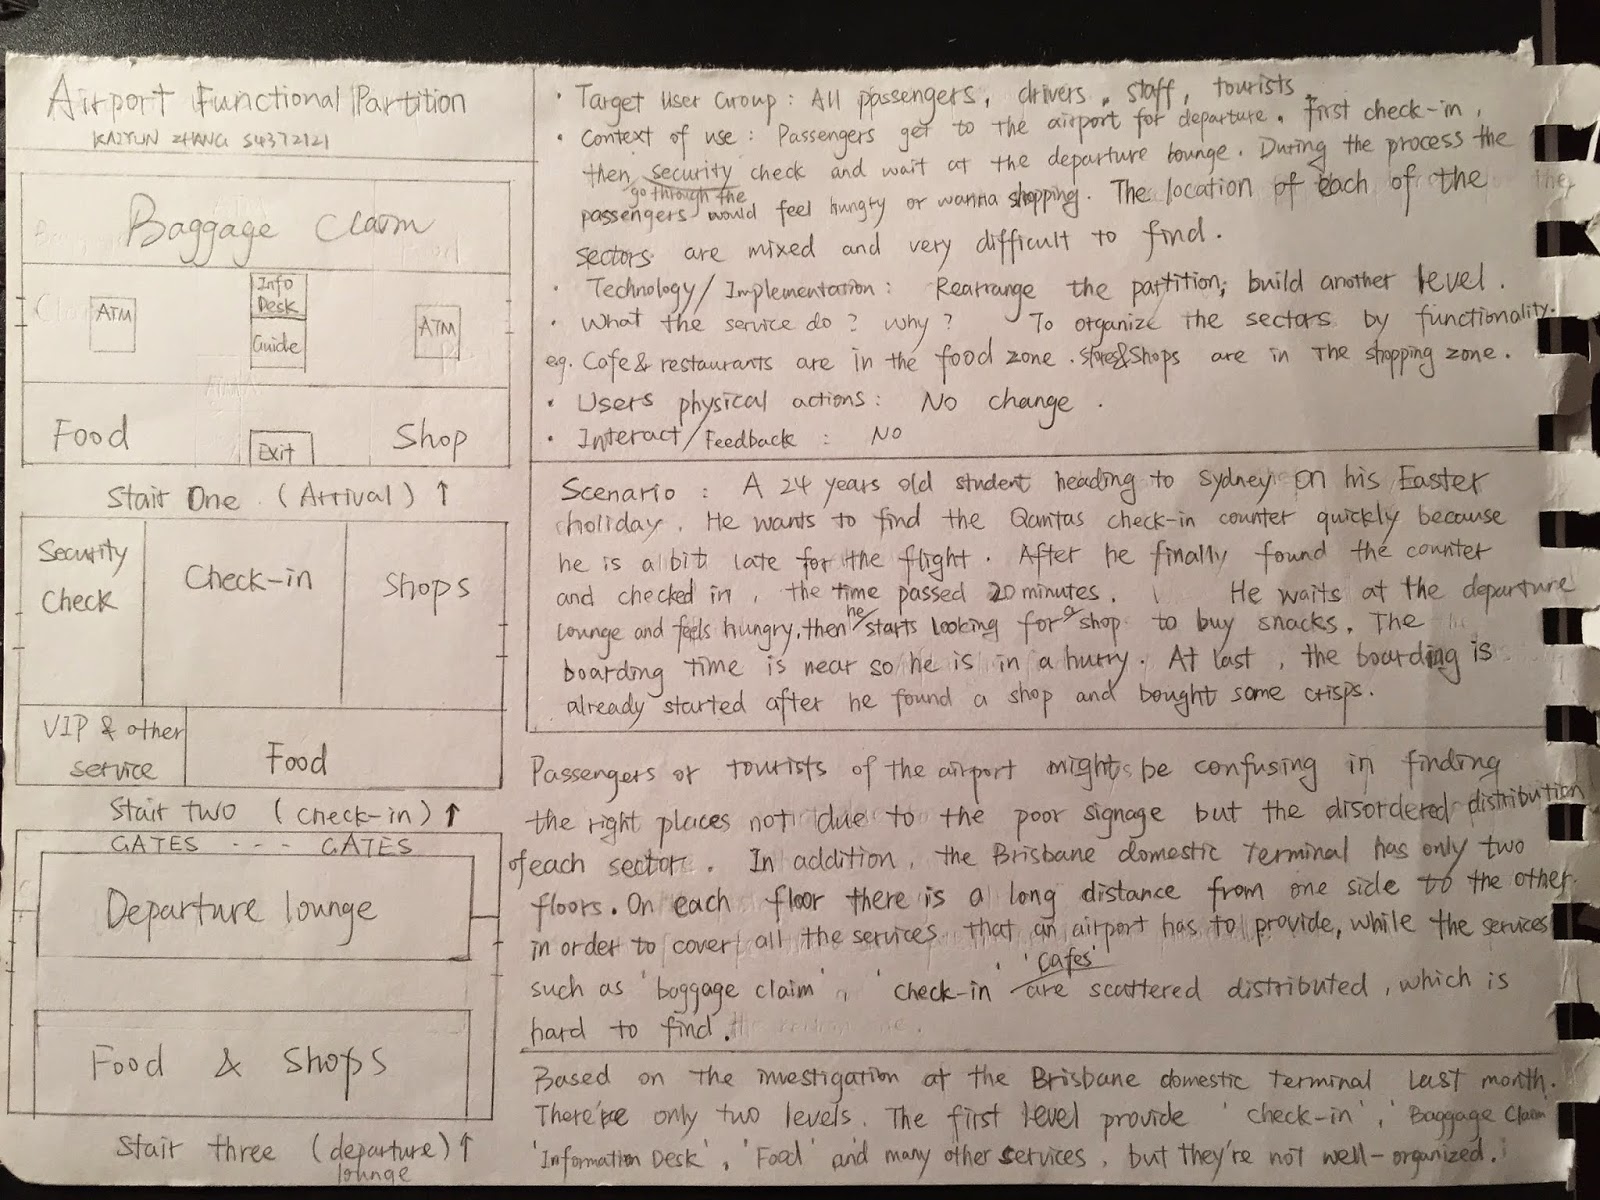 Airport Functional Partition
KAIYUN ZHANG S4372121
Baggage Claim
Info
Desk
ATM
ATM
Guide
Food
Exit
Shop
Stair One (Arrival) ↑
Security
Check
Check-in
Shops
VIP & other
service
Food
Stair two (check-in) ↑
GATES --- GATES
Departure lounge
Food & Shops
Stair three (departure) ↑
lounge
• Target User Group : All passengers, drivers, staff, tourists.
• Context of use : Passengers get to the airport for departure. First check-in,
then security check and wait at the departure lounge. During the process the
go through the
passengers would feel hungry or wanna shopping. The location of each of the
sectors are mixed and very difficult to find.
• Technology/Implementation : Rearrange the partition, build another level.
• What the service do ? why ? To organize the sectors by functionality.
eg. Cafe & restaurants are in the food zone. stores&shops are in the shopping zone.
• Users physical actions : No change.
• Interact/Feedback : No
Scenario : A 24 years old student heading to Sydney on his Easter
holiday. He wants to find the Qantas check-in counter quickly because
he is a bit late for the flight. After he finally found the counter
and checked in, the time passed 20 minutes. He waits at the departure
lounge and feels hungry, then he starts looking for a shop to buy snacks. The
boarding time is near so he is in a hurry. At last, the boarding is
already started after he found a shop and bought some crisps.
Passengers or tourists of the airport might be confusing in finding
the right places not due to the poor signage but the disordered distribution
of each sector. In addition, the Brisbane domestic terminal has only two
floors. On each floor there is a long distance from one side to the other
in order to cover all the services that an airport has to provide, while the services
such as 'baggage claim', 'check-in' 'cafes' are scattered distributed, which is
hard to find.
Based on the investigation at the Brisbane domestic terminal last month.
There're only two levels. The first level provide 'check-in', 'Baggage Claim'
'Information Desk', 'Food' and many other services, but they're not well-organized.